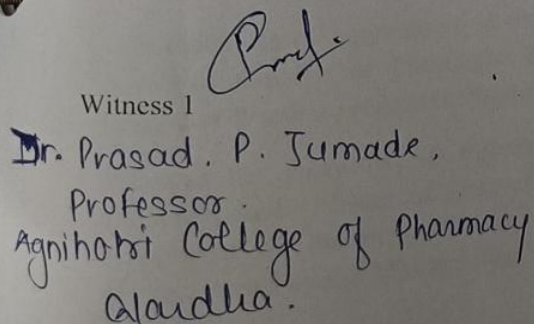 Witness 1
Dr. Prasad. P. Jumade,
Professor.
Agnihotri College of Pharmacy